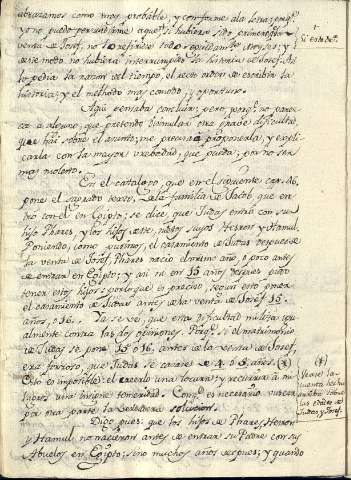 abrazamos como mas probable, y conforme a la letra; porq.e
yo no puedo persuadirme a que si hubiera sido primero q.e la
venta de Josef, no lo refiriese todo seguidam.te Moyses; y
de este modo no hubiera interrumpido la historia de Josef. Asi
lo pedia la razon del tiempo, el recto orden de escribir la
historia; y el methodo mas comodo, y oportuno.
Aqui pensaba concluir; pero, porq.e no parez-
ca a alguno que pretendo disimular otra grave dificultad,
que hai sobre el asunto; me precisa proponerla, y expli-
carla con la mayor brebedad, que pueda; por no ser
mas molesto.
En el catalogo, que en el siguiente cap. 46,
pone el sagrado texto, de la familia de Jacob, que en-
tro con el en Egipto; se dice, que Judas entró con su
hijo Phares, y los hijos de este, nietos suyos Hesron y Hamul.
Poniendo, como pusimos, el casamiento de Judas despues de
la venta de Josef, Phares nacio el mismo año, o poco antes
de entrar en Egipto; y asi ni en 15 años despues pudo
tener estos hijos: por lo que es preciso, segun esto poner
el casamiento de Judas antes de la venta de Josef 15
años, o 16. Ya se vé, que esta dificultad milita igu-
almente contra las dos opiniones. Porq.e si el matrimonio
de Judas se pone 15 o 16 antes de la venta de Josef,
era forzoso, que Judas se casase de 4 o 5 años. (*)
Esto es imposible: el creerlo una locura: y recurrir a mi-
lagros una insigne temeridad. Conq.e es necesario buscar
por otra parte la verdadera solucion.
Digo pues: que los hijos de Phares, Hesron
y Hamul no nacieron antes de entrar su Padre con sus
Abuelos en Egipto; sino muchos años despues; y quando
(*)
Vease la
cuenta hecha
arriba sobre
las edades de
Judas y Josef.